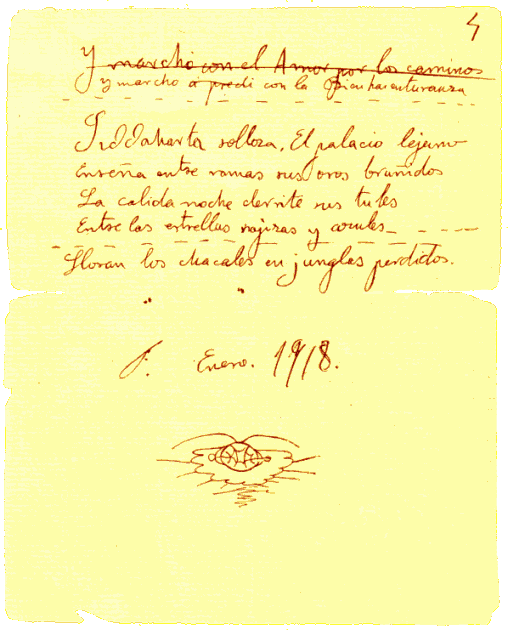 4
Y marchó con el Amor por los caminos
y marcho a predi con la Bienhaventuranza
Siddaharta solloza, El palacio lejano
Enseña entre ramas sus oros bruñidos
La calida noche derrite sus tules
Entre las estrellas rojizas y azules
Lloran los chacales en junglas perdidos.
Enero. 1918.